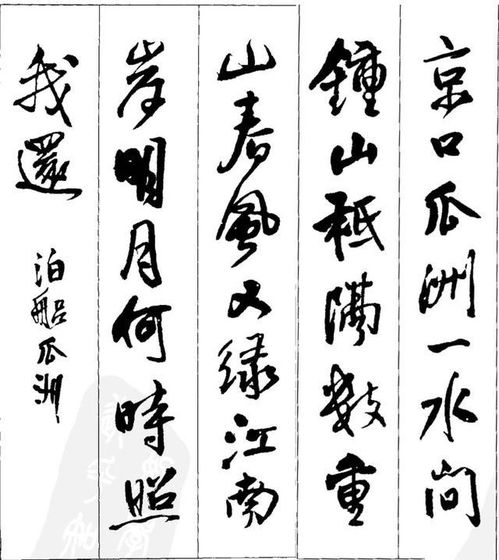 京口瓜洲一水间
鍾山秪隔數重
山春風又绿江南
岸明月何時照
我還
泊船瓜洲